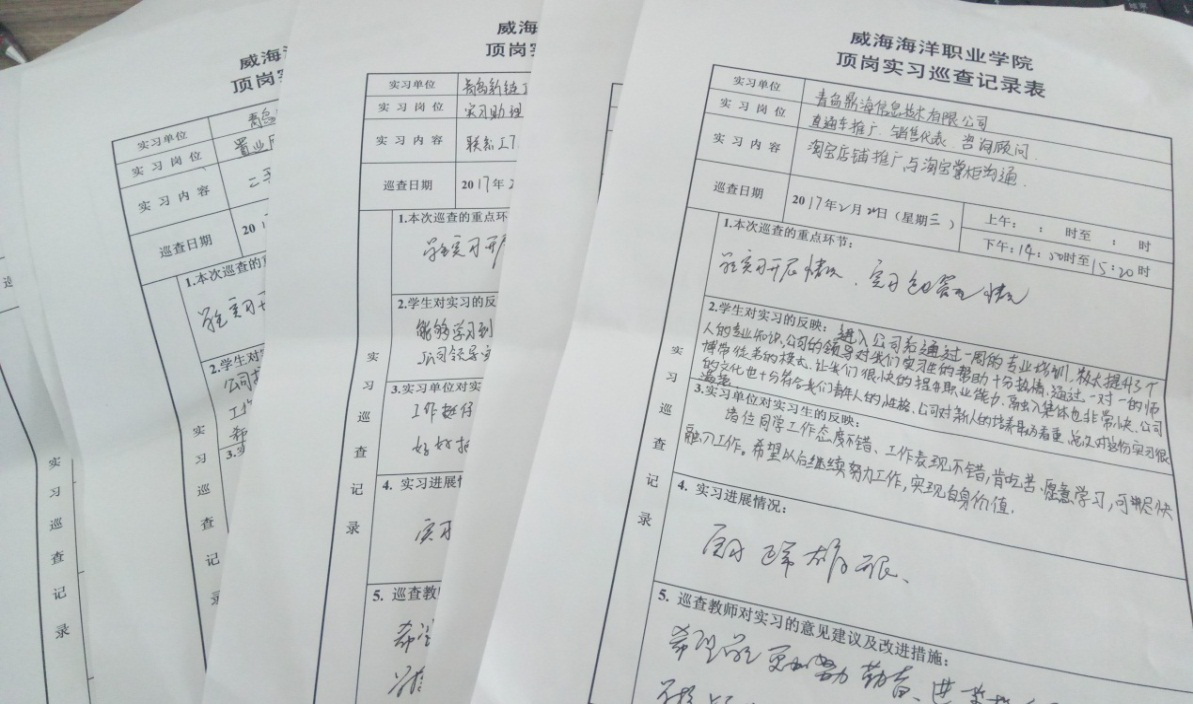 威海
顶岗实
实习单位 青岛
实习岗位 置业
实习内容 二手
巡查日期 20
1.本次巡查的重
学生实习开
2.学生对实
公司
工作
希
3.实
实习巡查记录
实习巡查记录
威海
顶岗实
实习单位 青岛新链
实习岗位 实习助理
实习内容
巡查日期 2017年2
1.本次巡查的重点环
学生实习开
2.学生对实习的反
能够学习到
公司领导
3.实习单位对实
工作挺仔
好好
4. 实习进展情
实习
5. 巡查教
希望
实习巡查记录
威海海洋职业学院
顶岗实习巡查记录表
实习单位 青岛鼎海信息技术有限公司
实习岗位 直通车推广、销售代表、咨询顾问.
实习内容 淘宝店铺推广与淘宝掌柜沟通.
巡查日期 2017年2月 日（星期三） 上午： ： 时至 ： 时
下午：14：50时至15：20时
1.本次巡查的重点环节：
学生实习开展情况、实习 情况
2.学生对实习的反映：进入公司后通过一周的专业培训，极大提升了个
人的专业知识，公司的领导对我们实习生的帮助十分热情，通过一对一的师
傅带徒弟的模式，让我们很快的提升职业能力，融入集体也非常快，公司
的文化也十分符合我们青年人的性格，公司对新人的培养 着重，总次对这份实习很
满意
3.实习单位对实习生的反映：
诸位同学工作态度不错、工作表现不错，肯吃苦、愿意学习，可 尽快
融入工作。希望以后继续努力工作，实现自身价值.
4. 实习进展情况：
5. 巡查教师对实习的意见建议及改进措施：
希望学生更加努力勤奋、
实习巡查记录